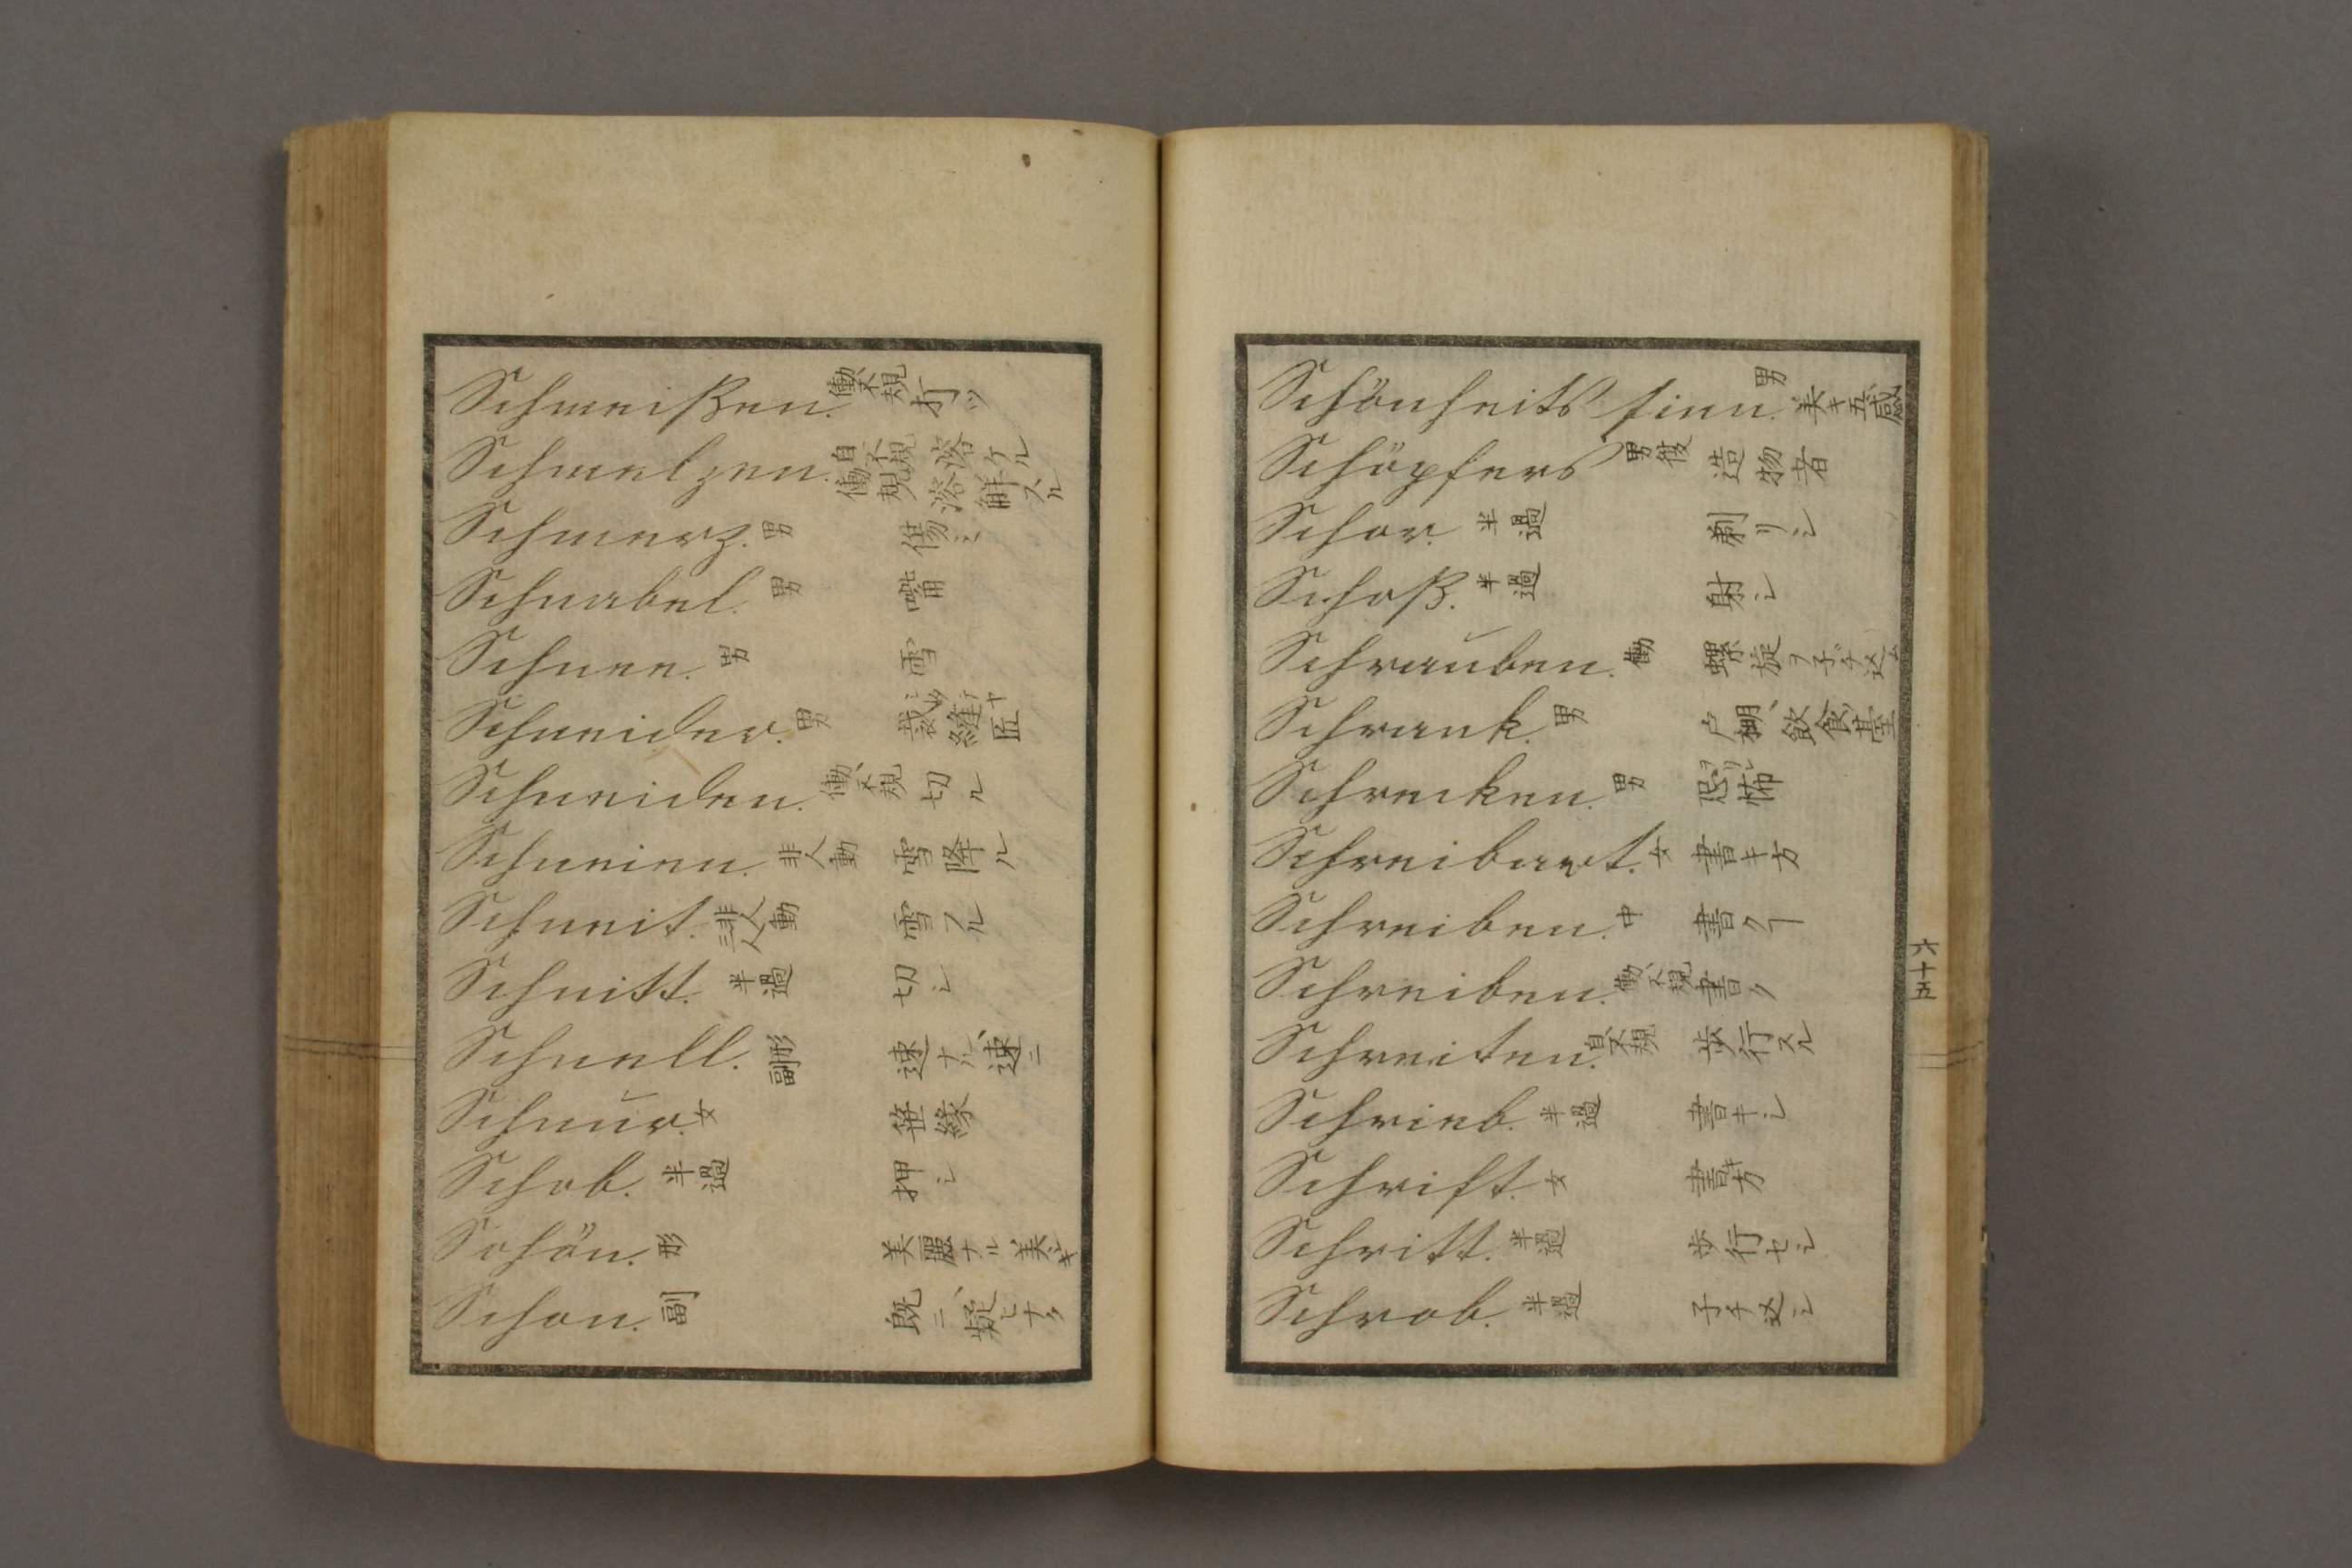 Schmeißen. 働不規 打ツ
Schmelzen. 自不規 溶ケル 働規 溶解スル
Schmerz. 男 傷ミ
Schnabel. 男 嘴
Schnee. 男 雪
Schneider. 男 裁縫匠
Schneiden. 働不規 切ル
Schneien. 非人動 雪降ル
Schneit. 非人動三人 雪フル
Schnitt. 半過 切シ
Schnell. 形副 速ナル、速ニ
Schnur. 女 笹縁
Schob. 半過 押シ
Schön. 形 美麗ナル、美シキ
Schon. 副 既ニ、疑ヒナク
Schönheits sinn. 男 美キ五感
Schöpfers 男後 造物者
Schor. 半過 剃リシ
Schoß. 半過 射シ
Schrauben. 働 螺旋ヲ子ヂ込ム
Schrank. 男 戸棚、飲食臺
Schrecken. 男 恐怖
Schreibart. 女 書キ方
Schreiben. 中 書クヿ
Schreiben. 働不規 書ク
Schreiten. 自不規 歩行スル
Schrieb. 半過 書キシ
Schrift. 女 書キ方
Schritt. 半過 歩行セシ
Schrob. 半過 子チ込シ
六十五